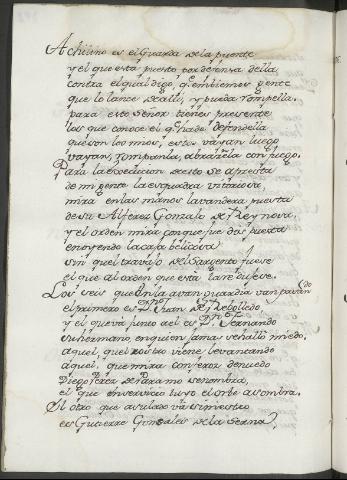 Achimo es el Guarda de la puente
y el que esta puesto por defensa della
contra el qual digo, q. embiemos gente
que lo lance de alli, y pueda rompella.
para esto Señor tienes presente
los que conoce el q. ha de defendella
que son los mios, estos vayan luego
vayan, rompanla, abrazela con fuego.
Para la execucion desto se apresta
de mi gente la esquadra vitoriosa,
mira en las manos la vandera puesta
de su Alferez Gonzalo de Reynosa,
y el orden mira con que fue dispuesta
en oyendo la caxa belicosa
sin que el travajo del Sargento fuese
el que al orden que esta la reduxese.
Los seis que en la avanguardia van pasando
el primero es Dn. Juan de Rebolledo,
y el que va junto a el es Dn. Fernando
su hermano en quien jamas se hallo miedo,
aquel, que el rostro viene levantando
aquel, que mira con feroz denuedo
Diego Perez de Paramo se nombra,
el que en servicio tuyo el orbe asombra.
El otro que a su lado va siniestro
es Gutierre Gonzales de la Serna,